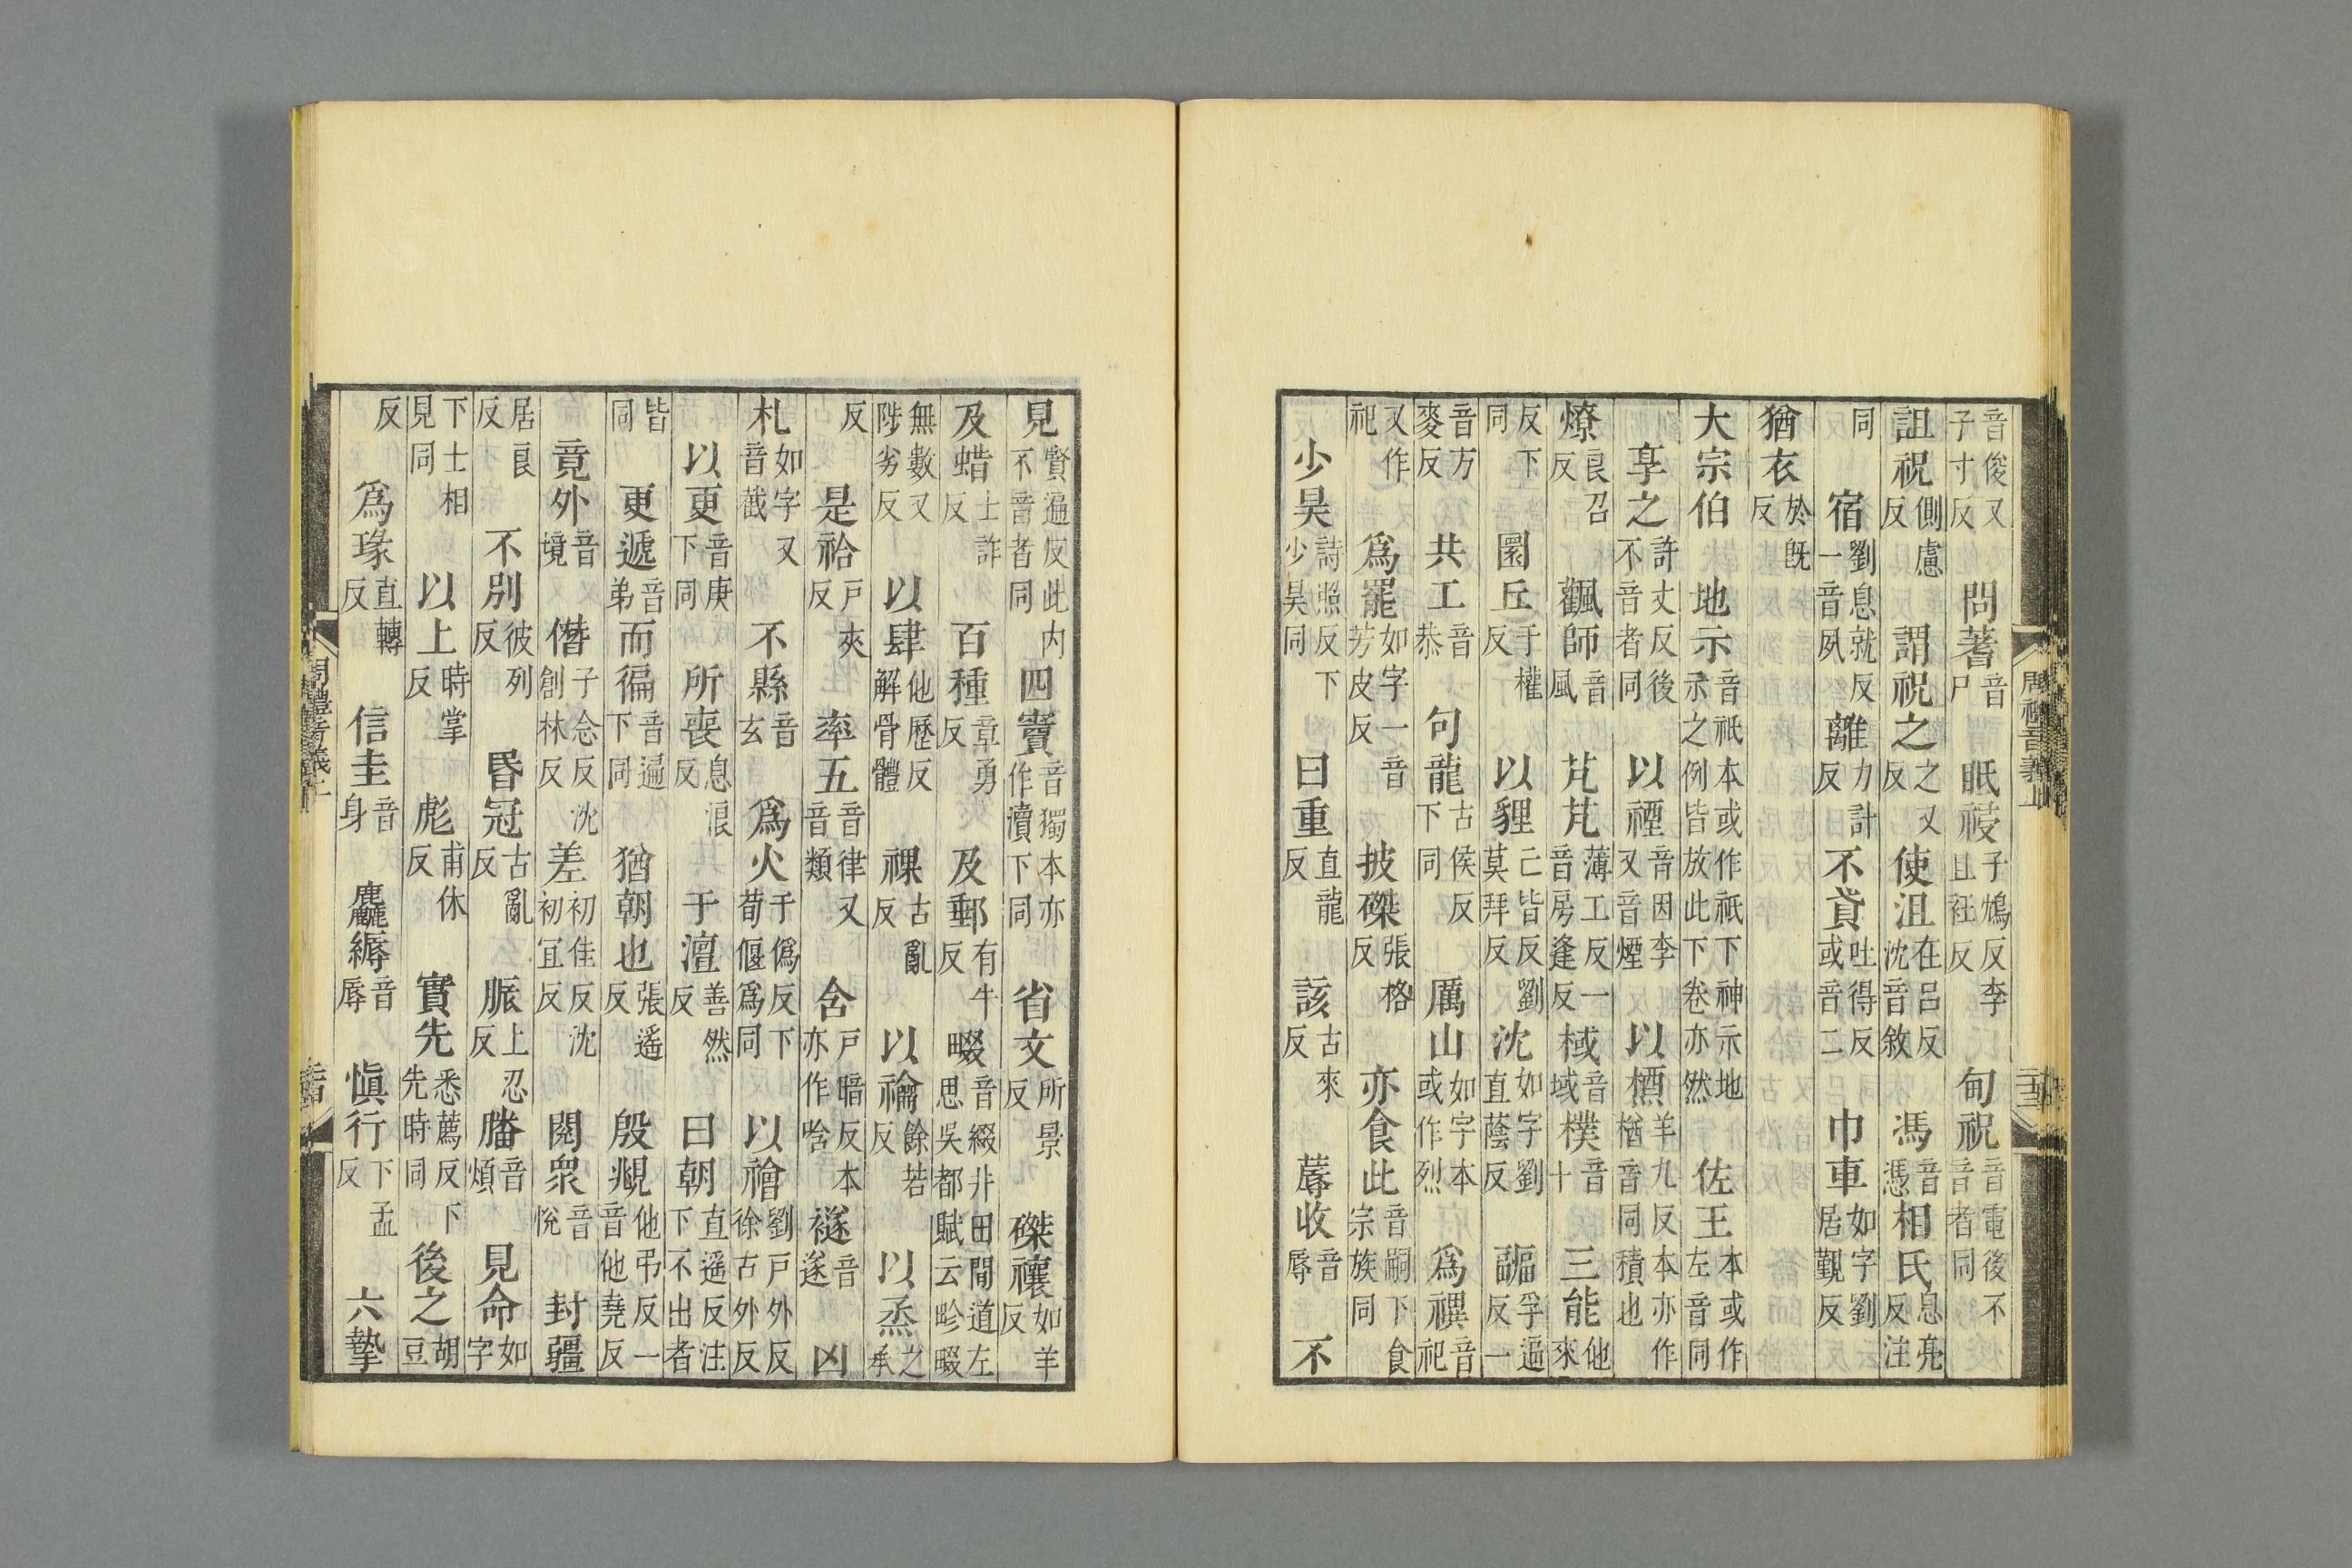 周禮音義上
音俊又子寸反 問蓍音尸 眡祲子鴆反李且衽反 甸祝音電後不音者同
詛祝側慮反 謂祝之之又反 使沮在呂反沈音敘 馮音憑相氏息亮反注
同 宿劉息就反一音夙 離力計反 不貣吐得反或音二 巾車如字劉居覲反
猶衣於既反
大宗伯 地示音祇本或作祇下神示地示之例皆放此下卷亦然 佐王本或作左音同
享之許丈反後不音者同 以禋音因李又音煙 以槱羊九反本亦作楢音同積也
燎良召反 飌師音風 芃芃薄工反一音房逢反 棫音域樸音卜 三能他來
反下同 圜丘于權反 以貍亡皆反劉莫拜反 沈如字劉直蔭反 疈孚逼反一
音方麥反 共工音恭 句龍古侯反下同 厲山如字本或作烈 爲禩音祀
又作祀 爲罷如字一音芳皮反 披磔張格反 亦食此音嗣下食宗族同
少昊詩照反下少昊同 曰重直龍反 該古來反 蓐收音辱 不
見賢遍反此内不音者同 四竇音獨本亦作瀆下同 省文所景反 磔禳如羊反
及蜡士詐反 百種章勇反 及郵有牛反 畷音綴非田間道左思吳都賦云畛畷
無數又陟劣反 以肆他歷反解骨體 祼古亂反 以禴餘若反 以烝之承
反 是祫戶夾反 率五音律又音類 含戶暗反本亦作唅 襚音遂 凶
札如字又音截 不縣音玄 爲火于僞反下荀偃爲同 以禬劉戶外反徐古外反
以更音庚下同 所喪息浪反 于澶善然反 曰朝直遥反注下不出者
皆同 更遞音弟 而徧音遍下同 猶朝也張遥反 殷覜他弔反一音他堯反
竟外音境 僭子念反沈創林反 差初佳反沈初宜反 閱衆音悅 封疆
居良反 不別彼列反 昏冠古亂反 脤上忍反 膰音煩 見命如字
下士相見同 以上時掌反 彪甫休反 實先悉薦反下先時同 後之胡豆
反 爲瑑直轉反 信圭音身 麤縟音辱 愼行下孟反 六摯